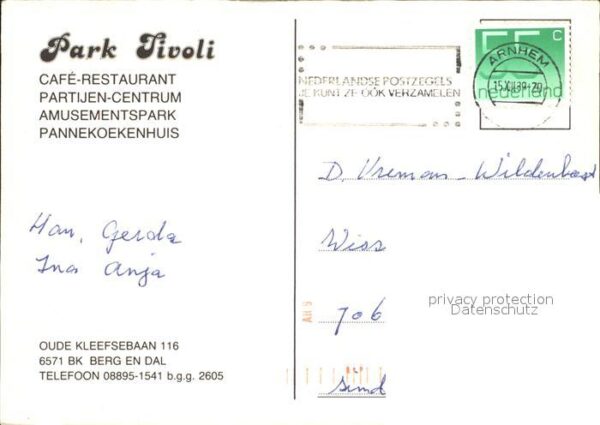 Park Tivoli
CAFÉ-RESTAURANT
PARTIJEN-CENTRUM
AMUSEMENTSPARK
PANNEKOEKENHUIS
Han, Gerda
Ina Anja
OUDE KLEEFSEBAAN 116
6571 BK BERG EN DAL
TELEFOON 08895-1541 b.g.g. 2605
NEDERLANDSE POSTZEGELS
JE KUNT ZE OÓK VERZAMELEN
55 c
nederland
ARNHEM
D. Vreman-Wildenbeest
Wiss
706
privacy protection
Datenschutz